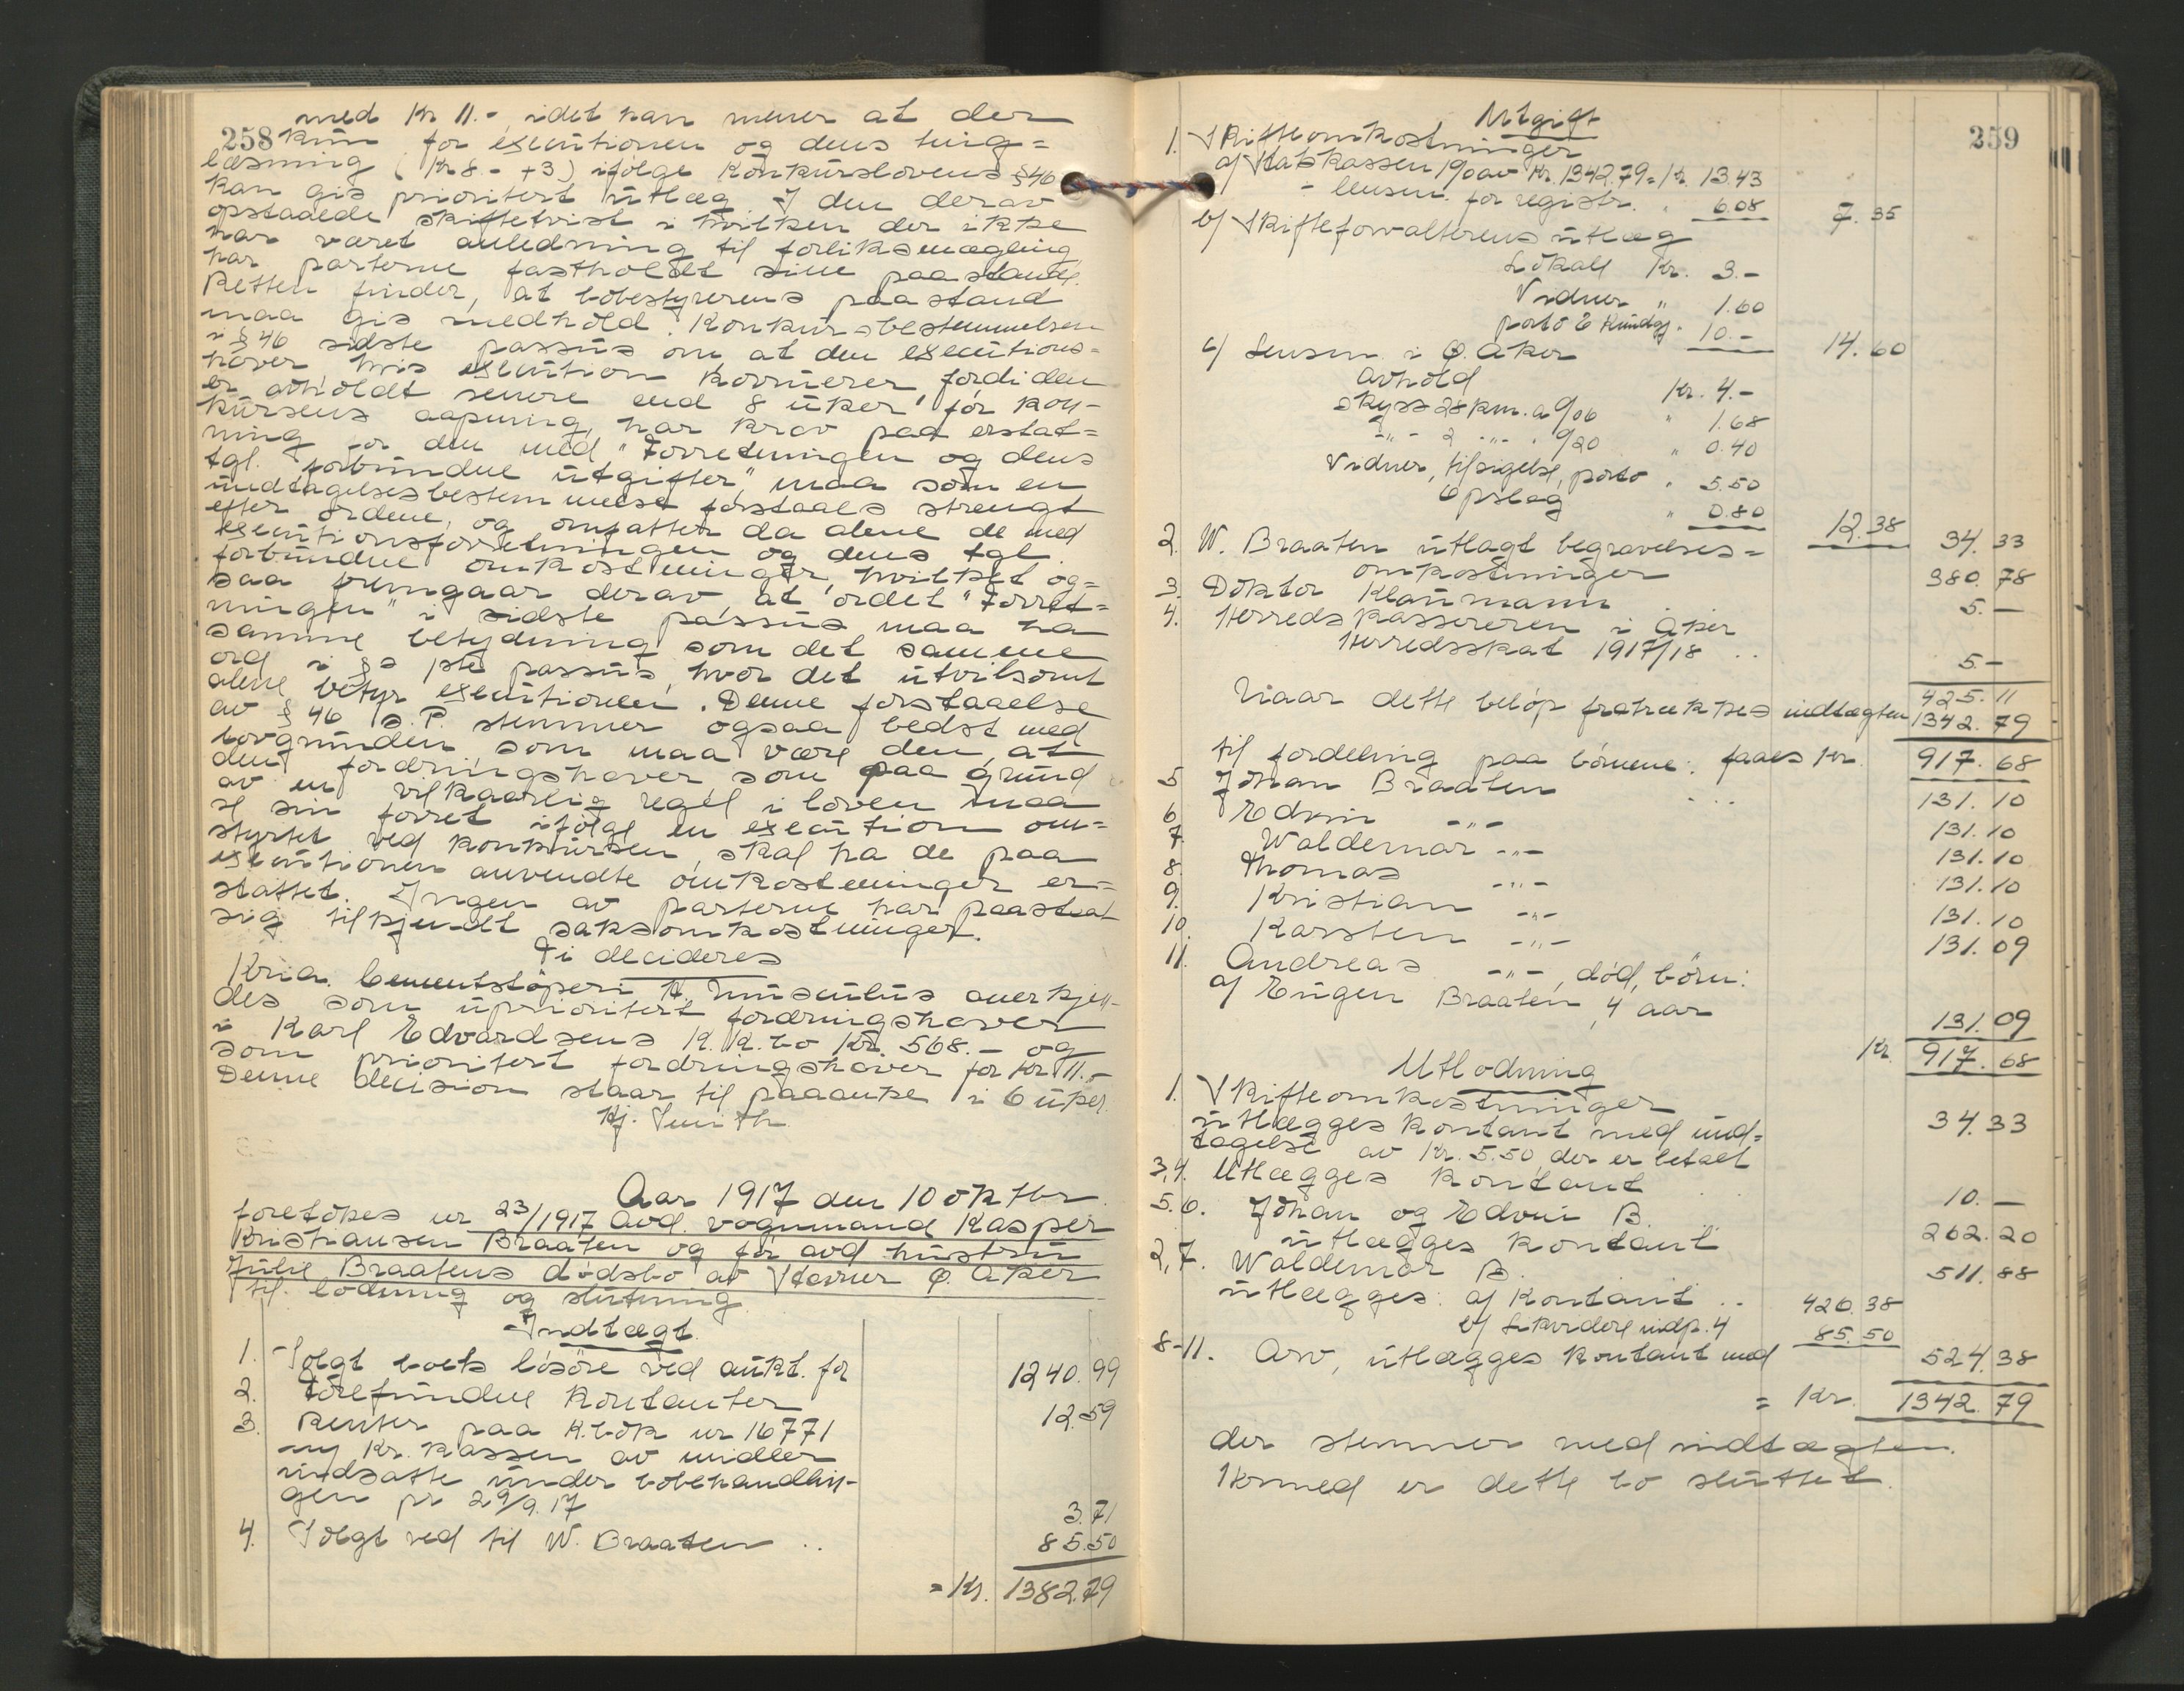 258
med Kr 11.-, idet han mener at der
kun for executionen og dens ting=
læsning (Kr 8.- +3) ifølge Konkurslovens §46
kan gis prioritert utlæg. I den derav
opstaaede skiftetvist i hvilken der ikke
har været anledning til forliksmægling
har parterne fastholdt sine paastande.
Retten finder, at bobestyrerens paastand
maa gis medhold. Konkursbestemmelsen
i §46 sidste passus om at den executions=
høver hvis execution kovrnerer fordi den
er avholdt senere end 8 uker før kon-
kursens aapning, har krav paa erstat=
ning for den med "Forretningen og dens
tgl. forbundne utgifter" maa som en
undtagelsesbestemmelse forstaaes strengt
efter ordene, og omfatter da alene de med
executionsforretningen og dens tgl.
forbundne omkostninger, hvilket og=
saa fremgaar derav at ordet "Forret=
ningen" i sidste passus maa ha
samme betydning som det samme
ord i §s 1ste passus, hvor det utvilsomt
alene betyr executionen. Denne forstaaelse
av §46 s.P. stemmer ogsaa bedst med
lovgrunden som maa være den, at
den fordringshaver som paa grund
av en vilkaarlig regel i loven maa
se sin forret ifølge en execution om=
styrtet ved konkursen, skal ha de paa
executionen anvendte omkostninger er=
stattet. Ingen av parterne har paastaat
sig tilkjendt saksomkostninger.
Ti decideres
Kria. Cementstøperi A. Musculus anerkjen-
des som uprioritert fordringshaver
i Karl Edvardsens K.K.bo Kr. 568.- og
som prioritert fordringshaver for Kr 11.-
Denne decision staar til paaanke i 6 uker.
Hj. Smith
Aar 1917 den 10 oktbr.
foretokes nr 23/1917 avd. vognmand Kasper
Kristiansen Braaten og før avd hustru
Julie Braatens dødsbo av Stovner Ø. Aker
til lodning og slutning.
Indtægt.
1. Solgt boets løsøre ved aukt. for 1240.99
2. Forefundne kontanter 12.59
3. Renter paa K.bok nr 16771
ny Kr. Kassen av midler
indsatte under bobehandlin-
gen pr 29/9.17 3.71
4. Solgt ved til W. Braaten .. 85.50
= Kr. 1382.79
259
Utgift
1. Skifteomkostninger
a/ Statskassen 1% av Kr. 1342.79 = Kr. 13.43
- lensm. for registr. " 6.08 7.35
b/ Skifteforvalterens utlæg
Lokale Kr. 3.-
Vidner " 1.60
porto & Kundgj. " 10.- 14.60
c/ Lensm. i Ø. Aker
avhold Kr. 4.-
skyss 28 km. a 0/06 " 1.68
-"- 2 -"- " 0/20 " 0.40
Vidner, tilsigelse, porto " 5.50
Opslag " 0.80 12.38 34.33
2. W. Braaten utlagt begravelses=
omkostninger 380.78
3. Doktor Klaumann . 5.-
4. Herredskassereren i Aker
Herredsskat 1917/18 .. 5.-
425.11
Naar dette beløp fratrækkes indtægten 1342.79
til fordeling paa børnene: faaes Kr. 917.68
5 Johan Braaten ... 131.10
6. Edvin -"- 131.10
7. Waldemar -"- 131.10
8. Thomas -"- 131.10
9. Kristian -"- 131.10
10. Karsten -"- 131.09
11. Andreas -"-, død, børn:
a/ Eugen Braaten, 4 aar 131.09
Kr. 917.68
Utlodning
1. Skifteomkostninger
utlægges kontant med und=
tagelse av Kr. 5.50 der er betalt 34.33
3,4. Utlægges kontant .. 10.-
5.6. Johan og Edvin B. ..
utlægges kontant 262.20
2,7. Waldemar B. 511.88
utlægges: a/ Kontant .. 426.38
b/ Likvidere indp. 4 85.50
8-11. Arv, utlægges kontant med 524.38
= Kr. 1342.79
der stemmer med indtægten.
Hermed er dette bo sluttet.